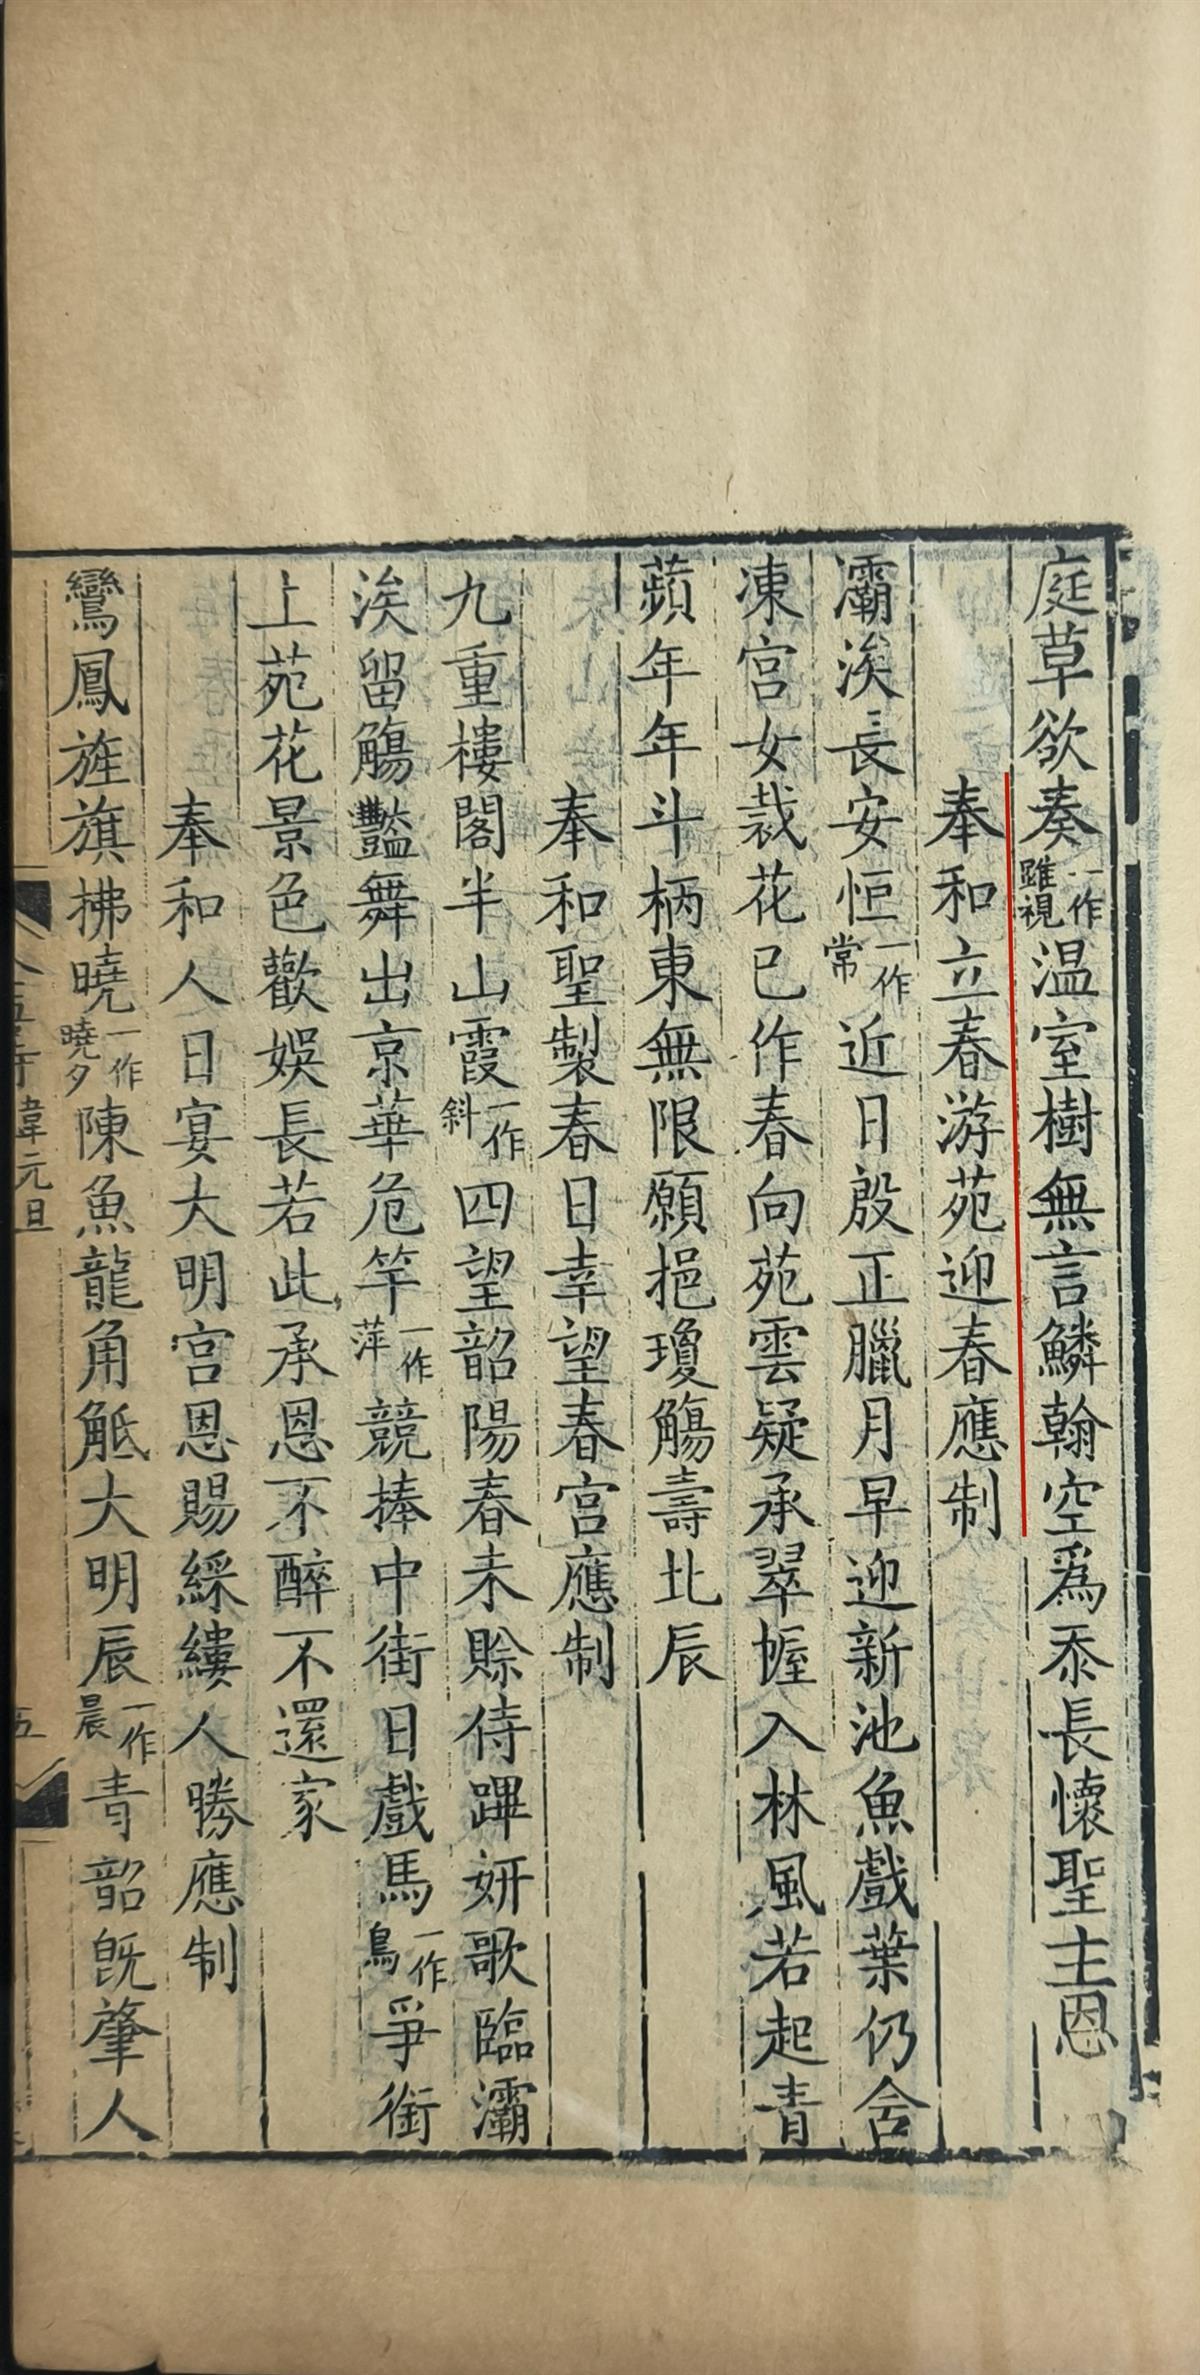 庭草欲奏一作雖視温室樹無言鱗翰空爲忝長懷聖主恩
奉和立春游苑迎春應制
灞涘長安恒一作常近日殷正臘月早迎新池魚戲葉仍含
凍宫女裁花已作春向苑雲疑承翠幄入林風若起青
蘋年年斗柄東無限願挹瓊觴壽北辰
奉和聖製春日幸望春宫應制
九重樓閣半山霞一作斜四望韶陽春未賒侍蹕妍歌臨灞
涘留觴豔舞出京華危竿一作萍競捧中街日戲馬一作鳥爭銜
上苑花景色歡娛長若此承恩不醉不還家
奉和人日宴大明宫恩賜綵縷人勝應制
鸞鳳旌旗拂曉一作曉夕陳魚龍角觝大明辰一作晨青韶既肇人
韋元旦
五